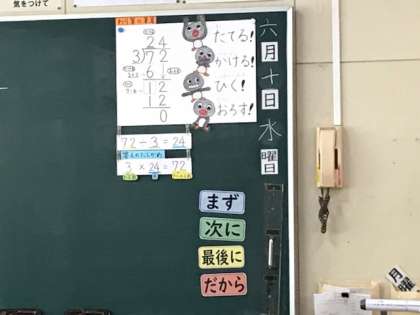 気をつけて
24
3)72
6
12
12
0
たてる!
かける!
ひく!
おろす!
72÷3=24
答えのたしかめ
3×24=72
六月十日水曜日
まず
次に
最後に
だから
月曜